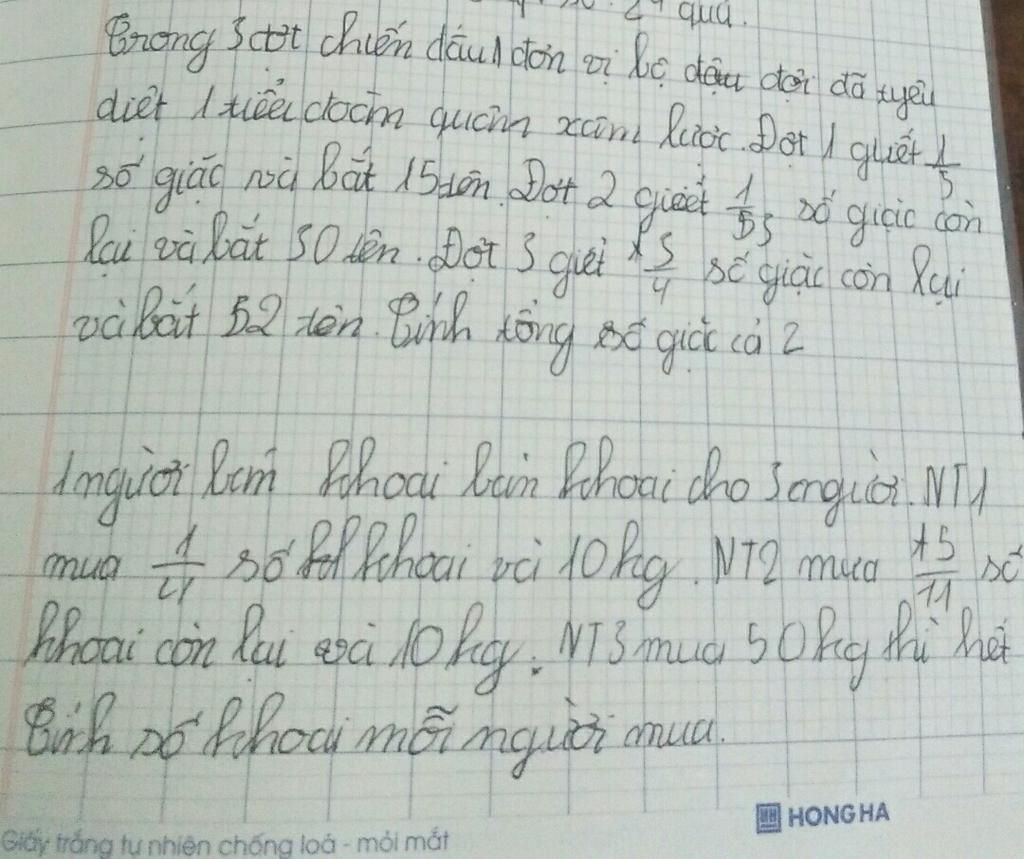 quả.
Trong 3 đợt chiến đấu 1 đơn vị bộ đội đã tyêu
diêt 1 tiểu đoàn quân xâm lược. Đợt 1 giết 1/5
số giặc và bắt 15 tên. Đợt 2 giết số giặc còn
lại và bắt 30 tên. Đợt 3 giết 3/4 số giặc còn lại
và bắt 52 tên. Tính tổng số giặc cả 2
1 người bán khoai bán khoai cho 3 người. NT1
mua 1/4 số khoai và 10kg. NT2 mua 5/11 số
khoai còn lại và 10kg. NT3 mua 50kg thì hết
Tính số khoai mỗi người mua.
HONG HA
Giấy trắng tự nhiên chống loá - mỏi mắt